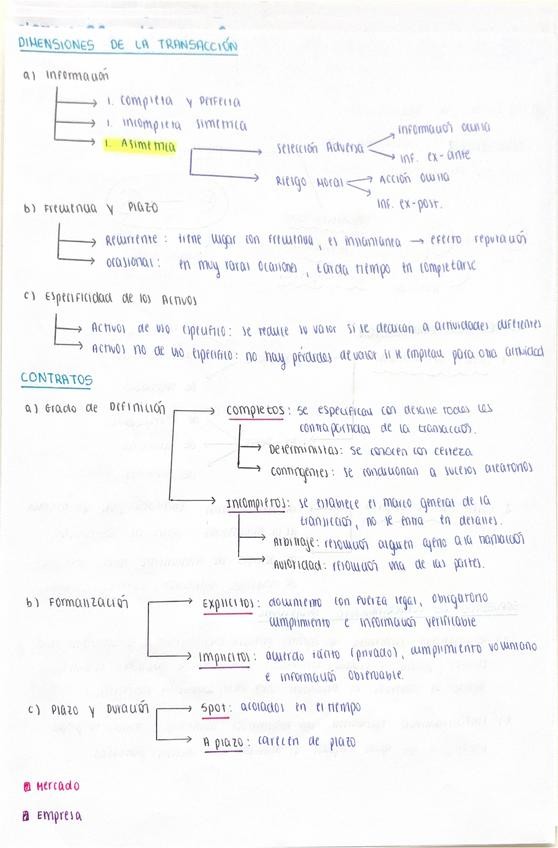 DIMENSIONES DE LA TRANSACCIÓN
a) Información
I. Completa y perfecta
I. Incompleta simétrica
I. Asimétrica
Selección Adversa
Información oculta
Inf. ex-ante
Riesgo Moral
Acción oculta
Inf. ex-post.
b) Frecuencia y Plazo
Recurrente: tiene lugar con frecuencia, es instantánea → efecto reputación
Ocasional: en muy raras ocasiones, tarda tiempo en completarse
c) Especificidad de los Activos
Activos de uso específico: se reduce su valor si se dedican a actividades diferentes
Activos no de uso específico: no hay pérdidas de valor si se emplean para otra actividad
CONTRATOS
a) Grado de Definición
Completos: se especifican con detalle todas las
contrapartidas de la transacción.
Deterministas: se conocen con certeza
Contingentes: se condicionan a sucesos aleatorios
Incompletos: se establece el marco general de la
transacción, no se entra en detalles.
Arbitraje: resolución alguien ajeno a la transacción
Autoridad: resolución una de las partes.
b) Formalización
Explícitos: documento con fuerza legal, obligatorio
cumplimiento e información verificable
Implícitos: acuerdo tácito (privado), cumplimiento voluntario
e información observable.
c) Plazo y Duración
Spot: acotados en el tiempo
A plazo: carecen de plazo
Mercado
Empresa